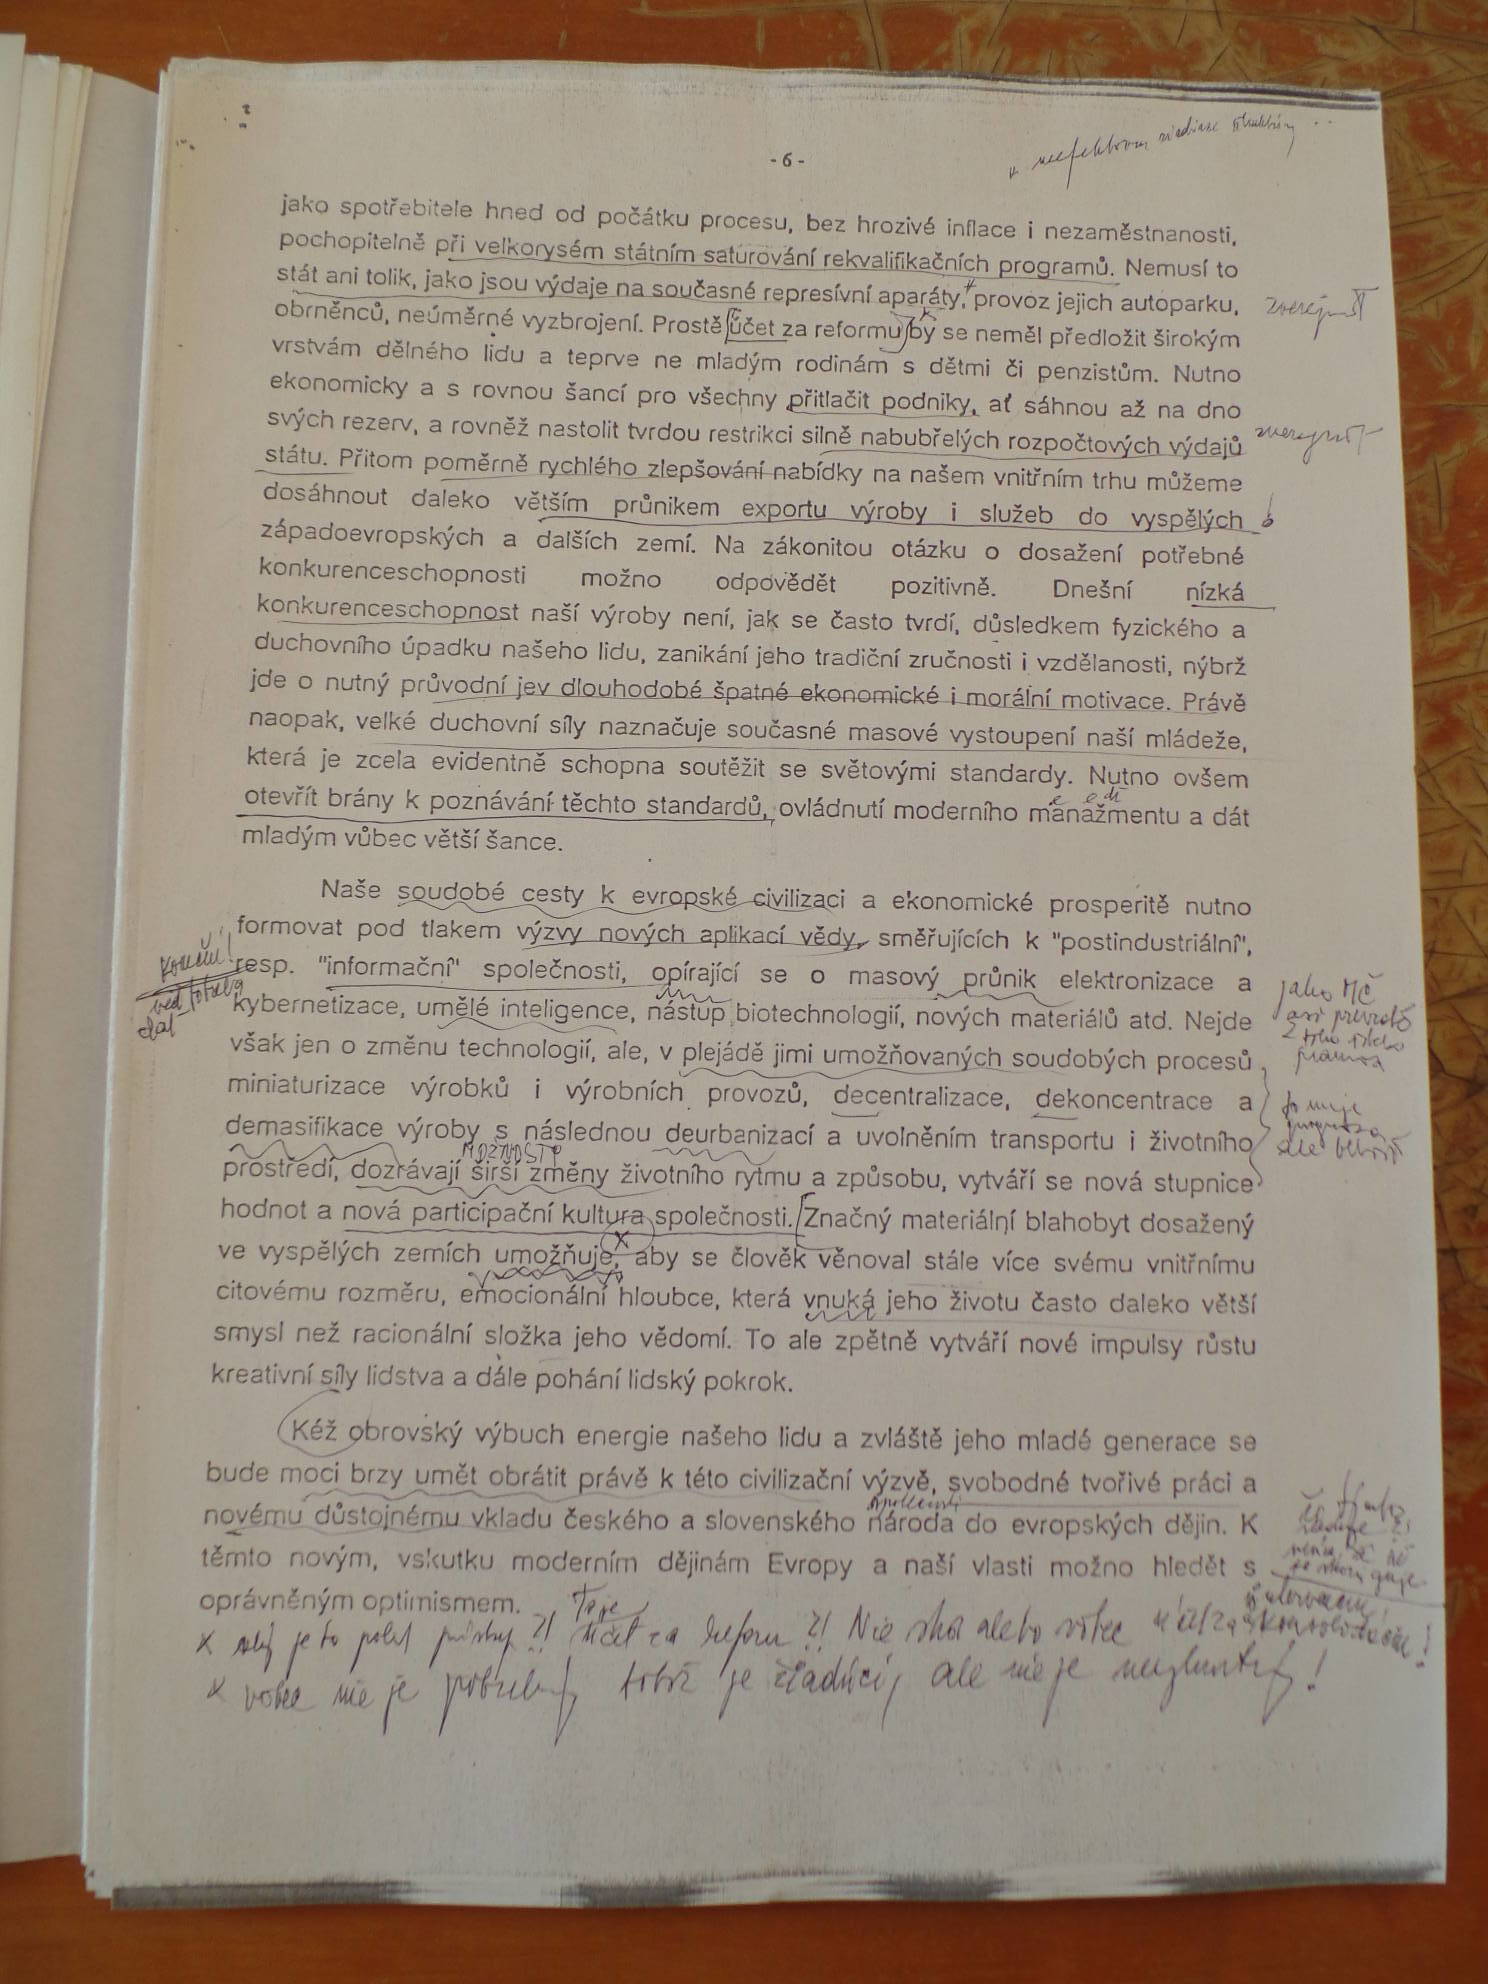 - 6 -
jako spotřebitele hned od počátku procesu, bez hrozivé inflace i nezaměstnanosti,
pochopitelně při velkorysém státním saturování rekvalifikačních programů. Nemusí to
stát ani tolik, jako jsou výdaje na současné represívní aparáty, provoz jejich autoparku,
obrněnců, neúměrné vyzbrojení. Prostě účet za reformu by se neměl předložit širokým
vrstvám dělného lidu a teprve ne mladým rodinám s dětmi či penzistům. Nutno
ekonomicky a s rovnou šancí pro všechny přitlačit podniky, ať sáhnou až na dno
svých rezerv, a rovněž nastolit tvrdou restrikci silně nabubřelých rozpočtových výdajů
státu. Přitom poměrně rychlého zlepšování nabídky na našem vnitřním trhu můžeme
dosáhnout daleko větším průnikem exportu výroby i služeb do vyspělých
západoevropských a dalších zemí. Na zákonitou otázku o dosažení potřebné
konkurenceschopnosti možno odpovědět pozitivně. Dnešní nízká
konkurenceschopnost naší výroby není, jak se často tvrdí, důsledkem fyzického a
duchovního úpadku našeho lidu, zanikání jeho tradiční zručnosti i vzdělanosti, nýbrž
jde o nutný průvodní jev dlouhodobé špatné ekonomické i morální motivace. Právě
naopak, velké duchovní síly naznačuje současné masové vystoupení naší mládeže,
která je zcela evidentně schopna soutěžit se světovými standardy. Nutno ovšem
otevřít brány k poznávání těchto standardů, ovládnutí moderního manažmentu a dát
mladým vůbec větší šance.
Naše soudobé cesty k evropské civilizaci a ekonomické prosperitě nutno
formovat pod tlakem výzvy nových aplikací vědy, směřujících k "postindustriální",
resp. "informační" společnosti, opírající se o masový průnik elektronizace a
kybernetizace, umělé inteligence, nástup biotechnologií, nových materiálů atd. Nejde
však jen o změnu technologií, ale, v plejádě jimi umožňovaných soudobých procesů
miniaturizace výrobků i výrobních provozů, decentralizace, dekoncentrace a
demasifikace výroby s následnou deurbanizací a uvolněním transportu i životního
prostředí, dozrávají širší změny životního rytmu a způsobu, vytváří se nová stupnice
hodnot a nová participační kultura společnosti. Značný materiální blahobyt dosažený
ve vyspělých zemích umožňuje, aby se člověk věnoval stále více svému vnitřnímu
citovému rozměru, emocionální hloubce, která vnuká jeho životu často daleko větší
smysl než racionální složka jeho vědomí. To ale zpětně vytváří nové impulsy růstu
kreativní síly lidstva a dále pohání lidský pokrok.
Kéž obrovský výbuch energie našeho lidu a zvláště jeho mladé generace se
bude moci brzy umět obrátit právě k této civilizační výzvě, svobodné tvořivé práci a
novému důstojnému vkladu českého a slovenského národa do evropských dějin. K
těmto novým, vskutku moderním dějinám Evropy a naší vlasti možno hledět s
oprávněným optimismem.
x je to ?! účet za reformu ?! Nie skôr alebo vôbec
x vôbec nie je potrebný, tobôž je žiadúci, ale nie je nevyhnutný!